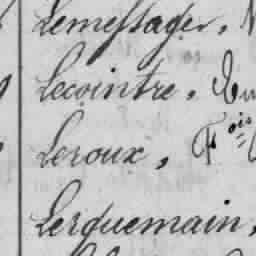 Lemessager.
Lecointre.
Leroux, Fois
Lerquemain,